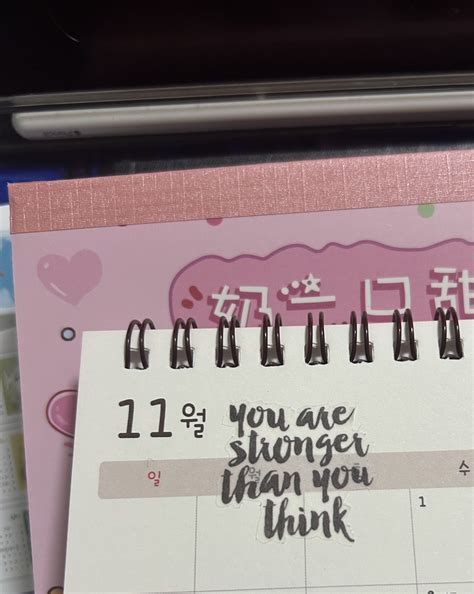 奶 口 甜
11월
you are
stronger
than you
think
일 월 수
1